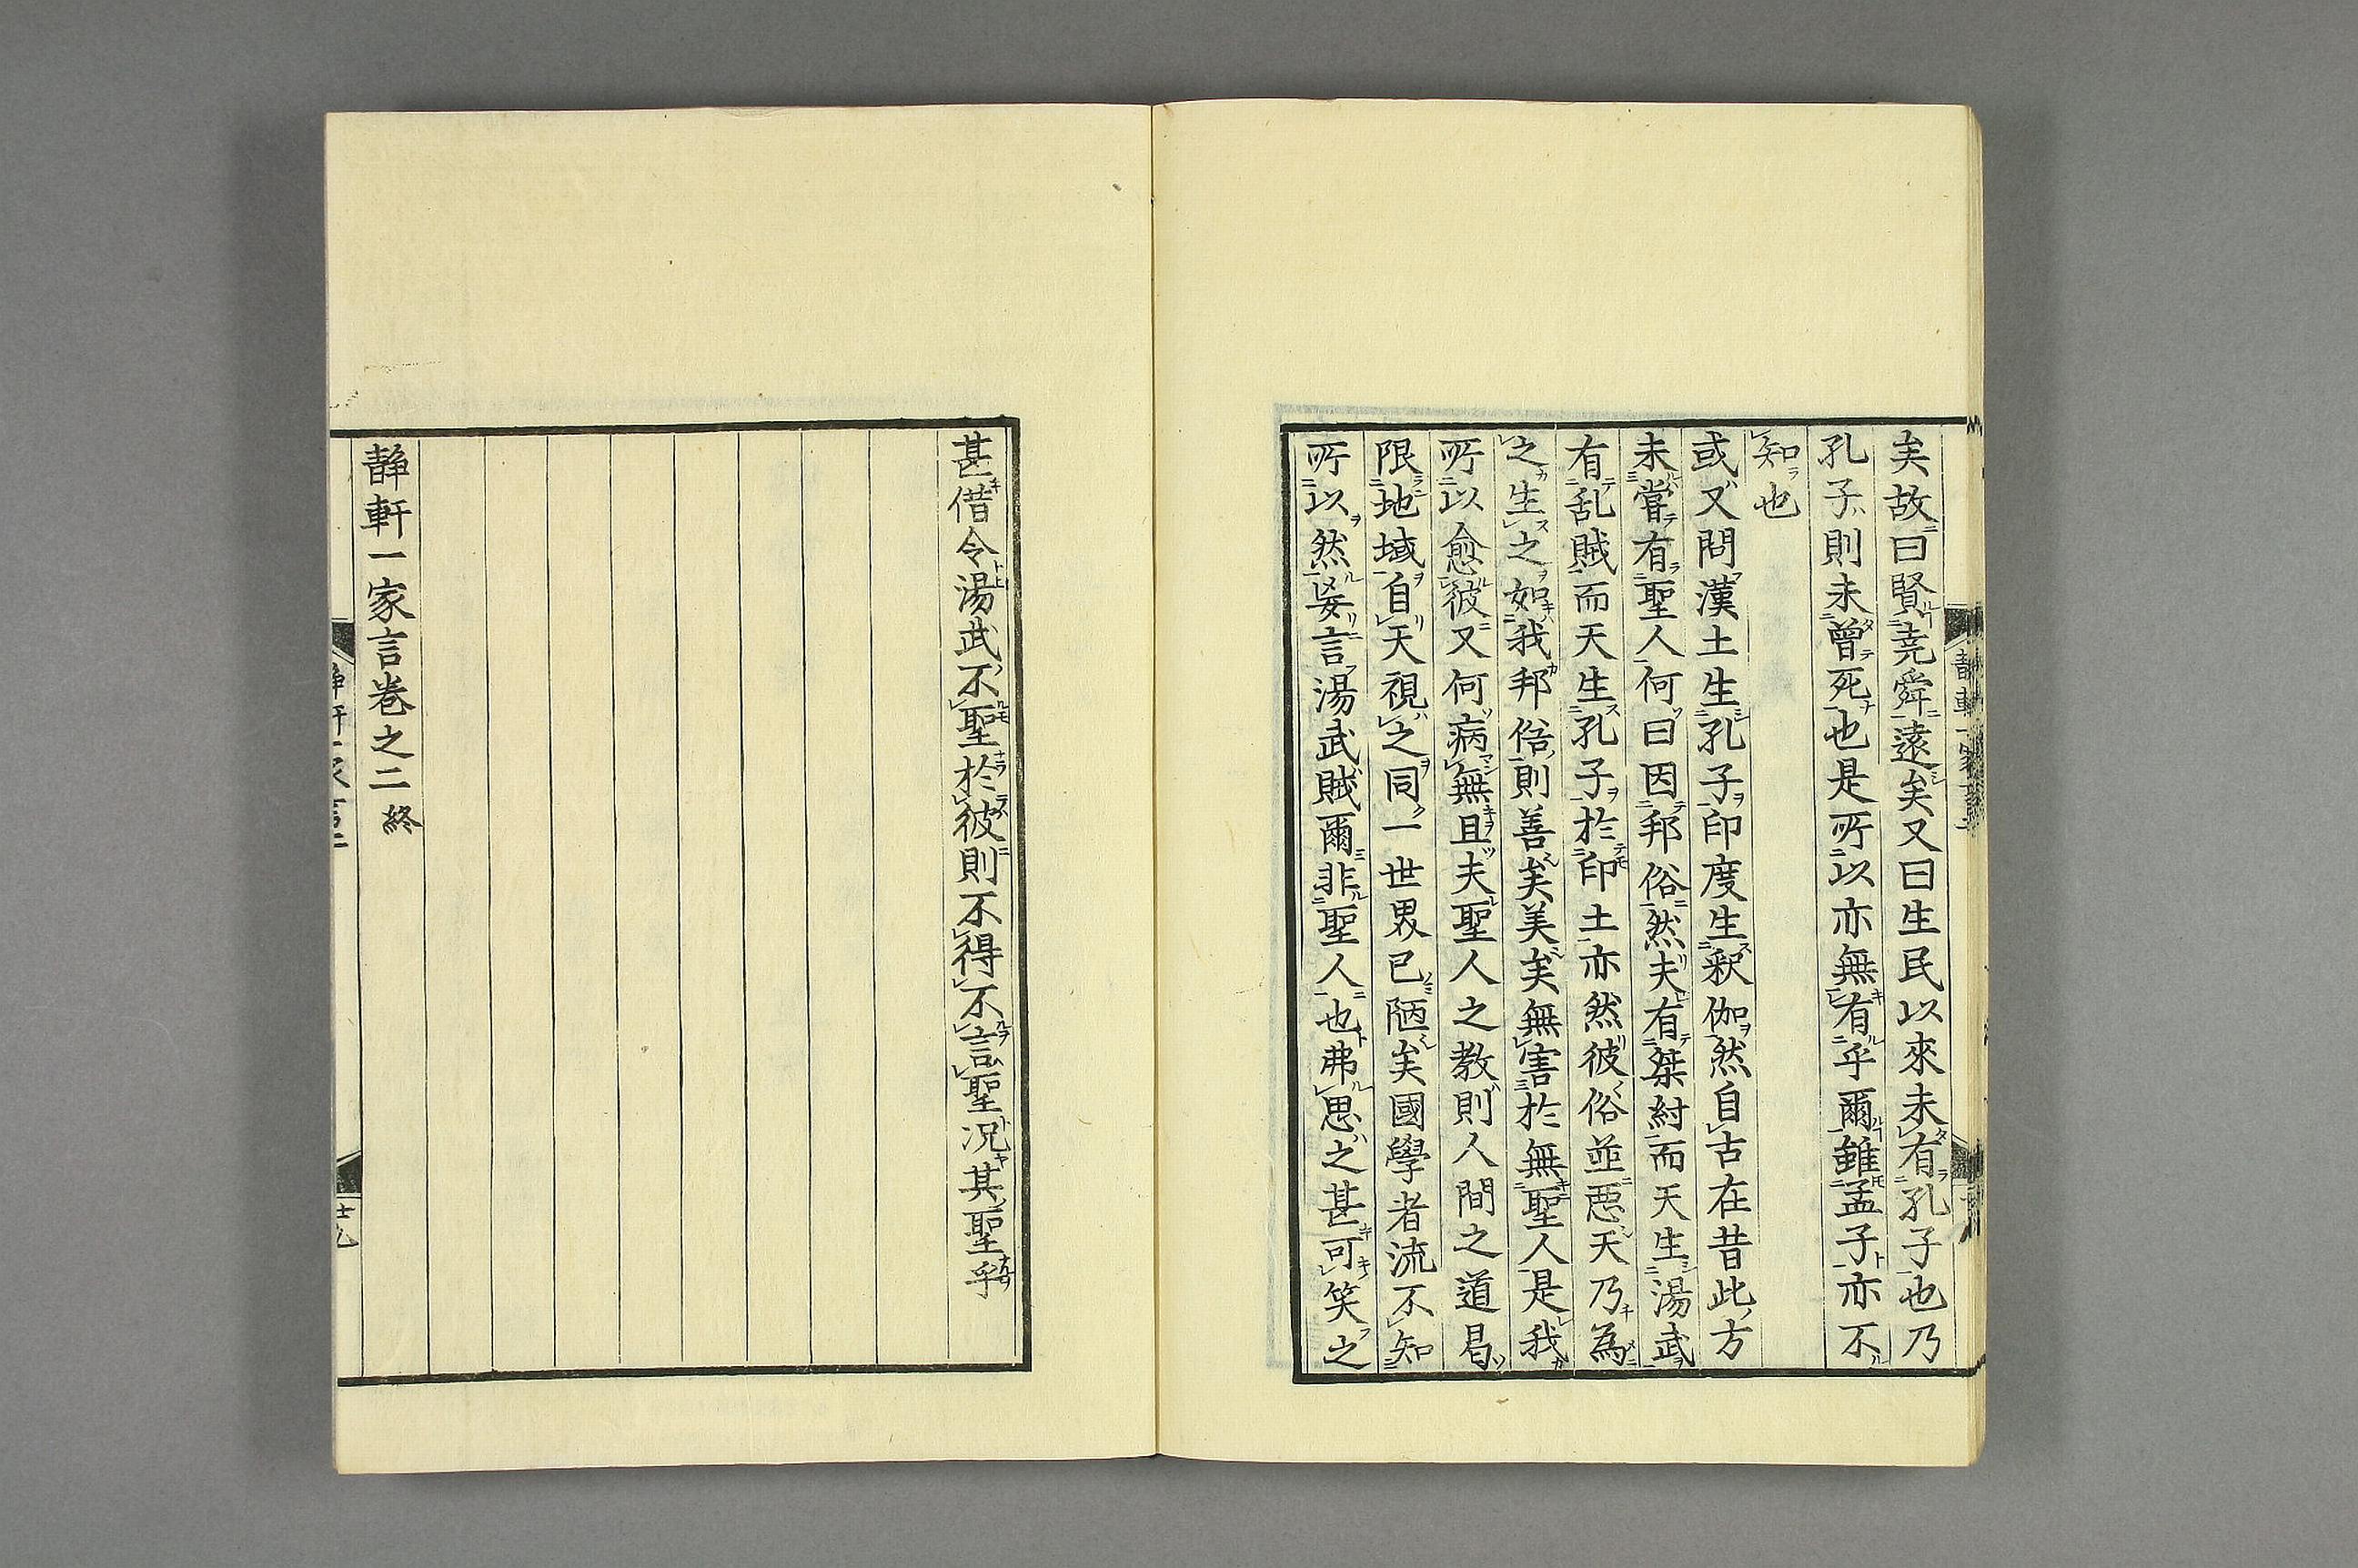 矣故曰賢堯舜遠矣又曰生民以來未有孔子也乃
孔子則未曾死也是所以亦無有乎爾雖孟子亦不
知也
或又問漢土生孔子印度生釈伽然自古在昔此方
未嘗有聖人何曰因邦俗然夫有桀紂而天生湯武
有乱賊而天生孔子於印土亦然彼俗並悪天乃為
之生之如我邦俗則善矣美矣無害於無聖人是我
所以愈彼又何病無且夫聖人之教則人間之道曷
限地域自天視之同一世界已陋矣國學者流不知
所以然妄言湯武賊爾非聖人也弗思之甚可笑之
甚借令湯武不聖於彼則不得不言聖况其聖乎
靜軒一家言巻之二終